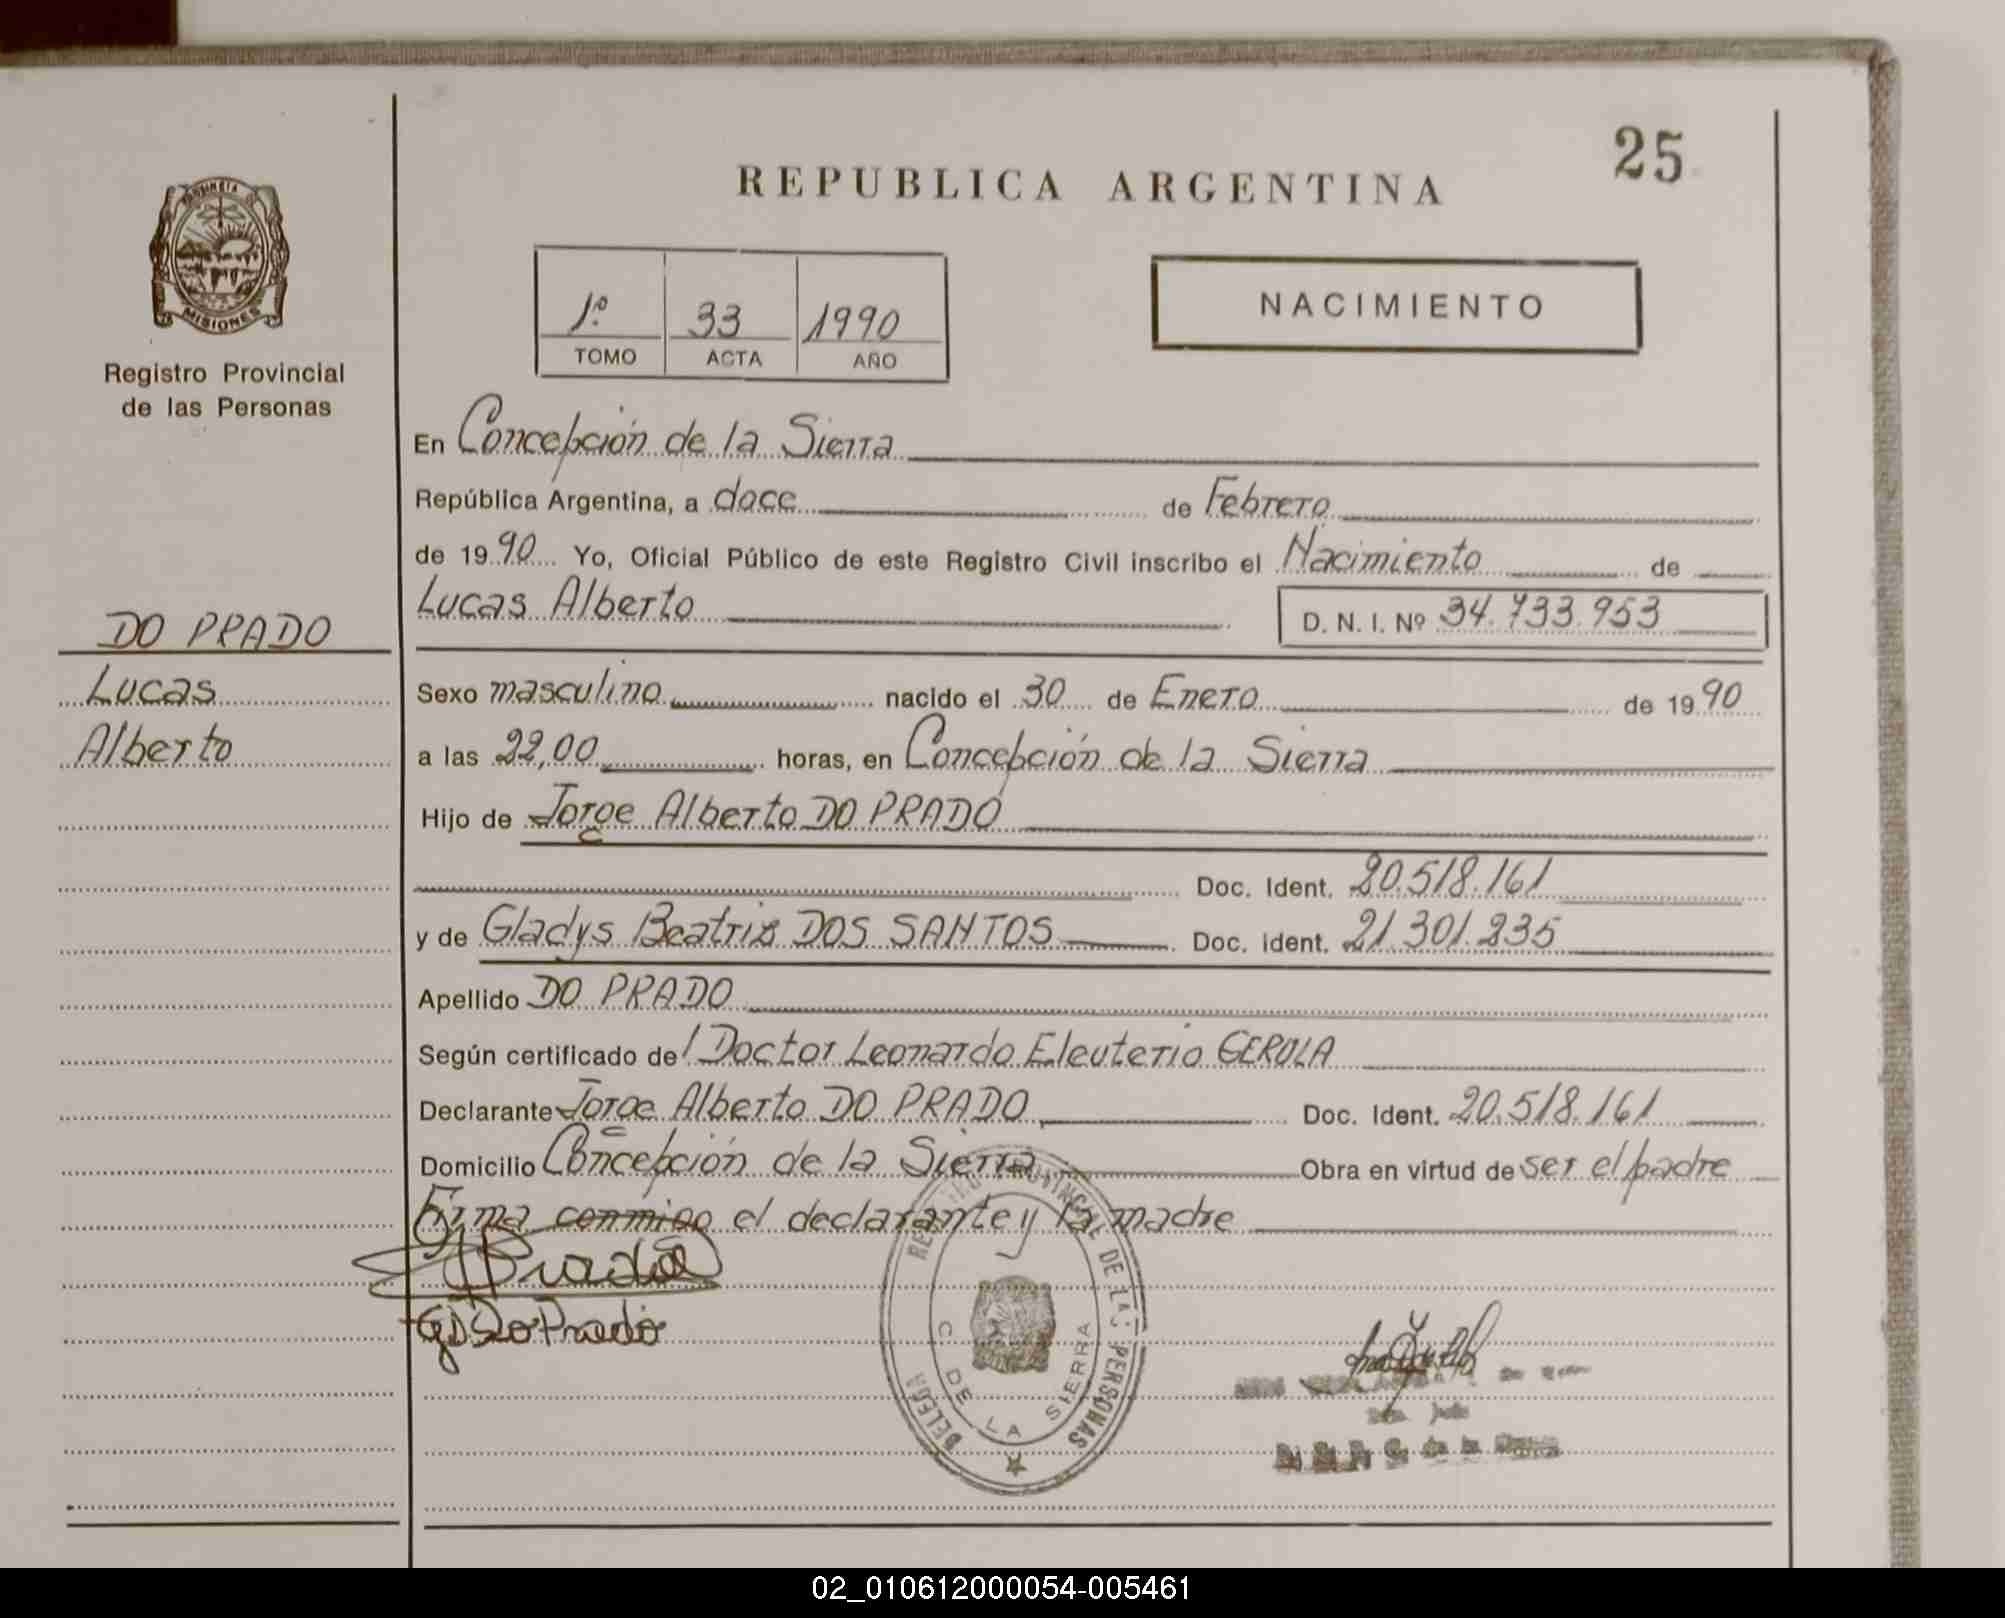 25
REPUBLICA ARGENTINA
PROVINCIA
MISIONES
Registro Provincial
de las Personas
1º 33 1990
TOMO ACTA AÑO
NACIMIENTO
En Concepción de la Sierra
República Argentina, a doce de Febrero
de 1990 Yo, Oficial Público de este Registro Civil inscribo el Nacimiento de
Lucas Alberto D. N. I. Nº 34.733.953
DO PRADO
Lucas
Alberto
Sexo masculino nacido el 30 de Enero de 1990
a las 22,00 horas, en Concepción de la Sierra
Hijo de Jorge Alberto DO PRADO
Doc. Ident. 20.518.161
y de Gladys Beatriz DOS SANTOS Doc. Ident. 21.301.235
Apellido DO PRADO
Según certificado del Doctor Leonardo Eleuterio GEROLA
Declarante Jorge Alberto DO PRADO Doc. Ident. 20.518.161
Domicilio Concepción de la Sierra Obra en virtud de ser el padre
Firma conmigo el declarante y la madre
REGISTRO PROVINCIAL DE LAS PERSONAS
C. DE LA SIERRA
02_010612000054-005461